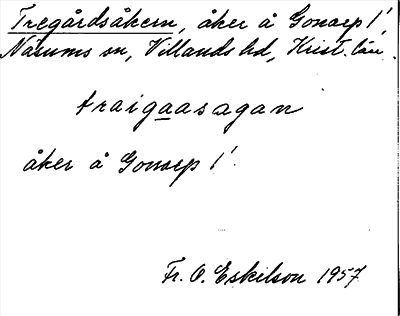 Tregårdsåkern, åker å Gonarp 1!
Näsums sn, Villands hd, Krist. län.
traigaasagan
åker å Gonarp 1!
Fr. O. Eskilson 1957